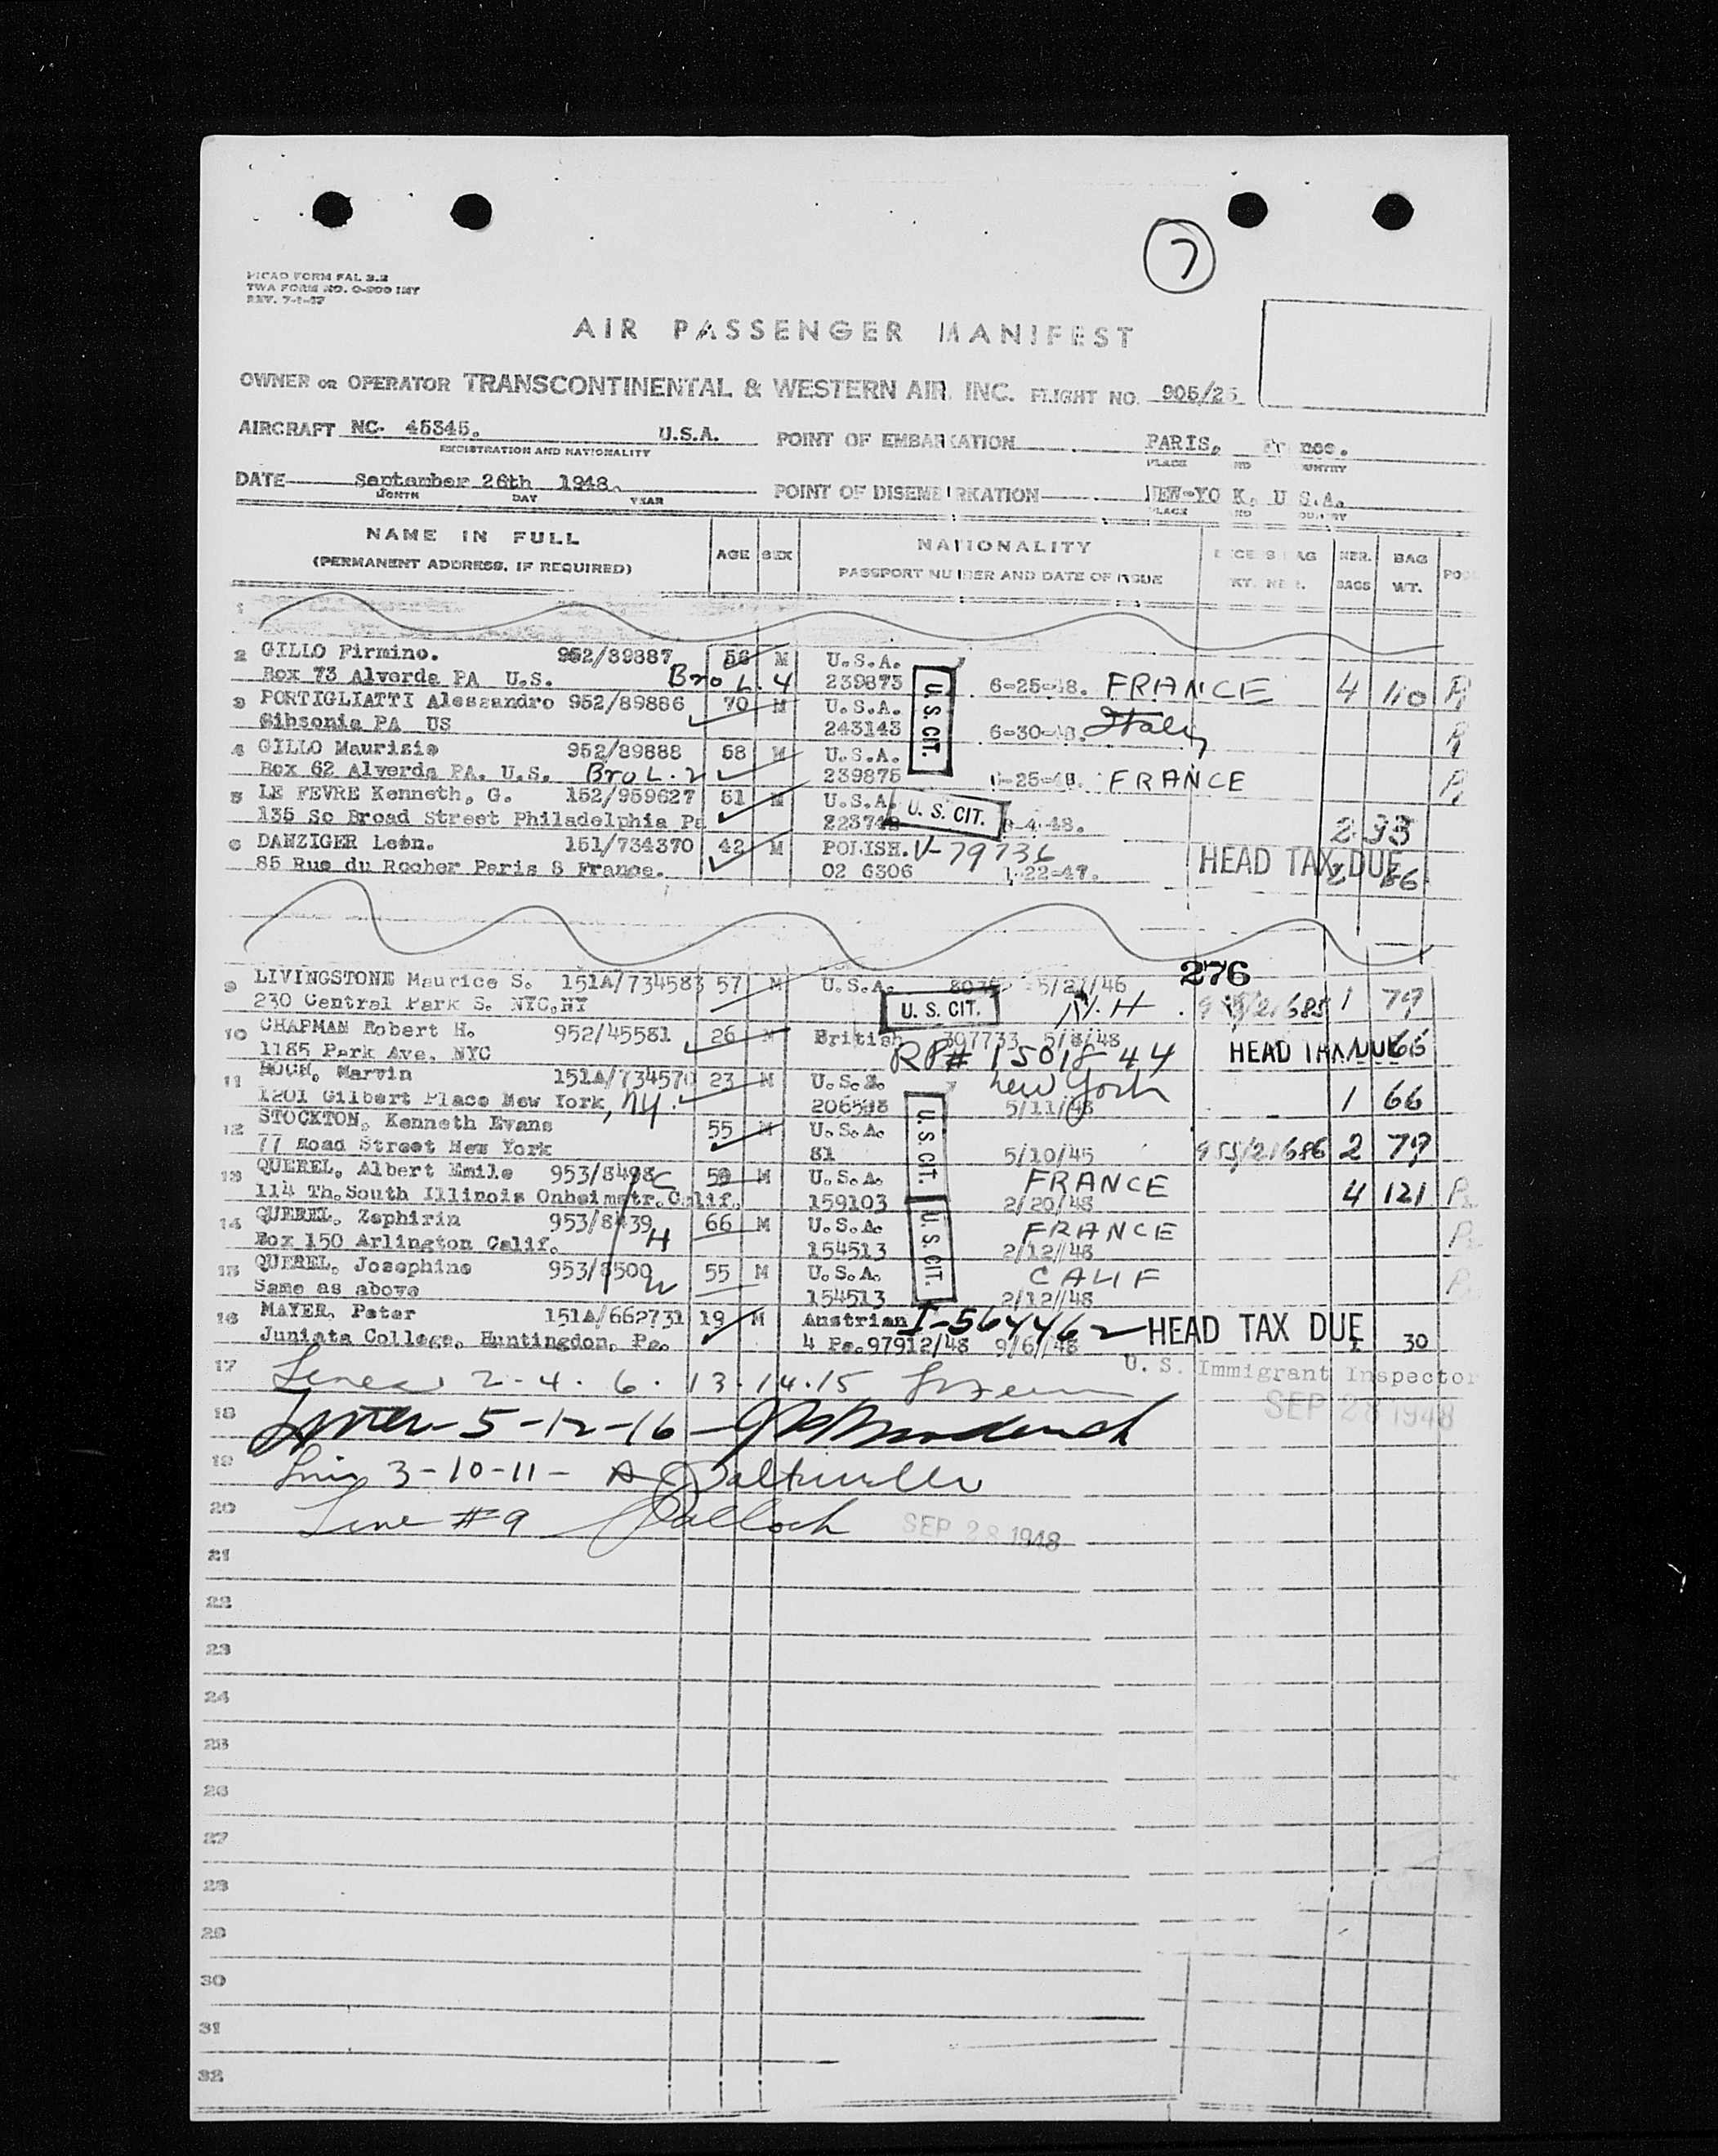 7
PICAO FORM FAL 2.2
TWA FORM NO. O-200 INT
REV. 7-1-47
AIR PASSENGER MANIFEST
OWNER OR OPERATOR TRANSCONTINENTAL & WESTERN AIR, INC. FLIGHT NO. 905/25
AIRCRAFT NC- 45345. U.S.A. POINT OF EMBARKATION PARIS,
REGISTRATION AND NATIONALITY PLACE
DATE September 26th 1948. POINT OF DISEMBARKATION NEW-YO K, U S.A.
MONTH DAY YEAR PLACE
NAME IN FULL AGE SEX NATIONALITY NBR. BAG
(PERMANENT ADDRESS, IF REQUIRED) PASSPORT NUMBER AND DATE OF ISSUE BAGS WT.
1
2 GILLO Firmino. 952/89887 56 M U.S.A.
Box 73 Alverda PA U.S. Bro L. 4 239873 6-25-48. FRANCE 4 110
3 PORTIGLIATTI Alessandro 952/89886 70 M U.S.A. U.S. CIT.
Gibsonia PA US 243143 6-30-48. Italy
4 GILLO Maurisio 952/89888 58 M U.S.A.
Box 62 Alverda PA. U.S. Bro L. 2 239875 -25-48. FRANCE
5 LE FEVRE Kenneth, G. 152/959627 51 M U.S.A. U. S. CIT.
135 So Broad Street Philadelphia Pa -4-48. 2 35
6 DANZIGER León. 151/734370 42 M POLISH. V-79736 HEAD TAX DUE
85 Rue du Rocher Paris 8 France. 02 6306 -22-47. 66
276
9 LIVINGSTONE Maurice S. 151A/734583 57 M U.S.A. 5/21/46
230 Central Park S. NYC,NY U. S. CIT. N.H 1 79
10 CHAPMAN Robert H. 952/45581 26 M British 307733 5/8/48
1185 Park Ave, NYC RP# 1501844 HEAD TAX DUE 66
11 HOCH, Marvin 151A/734570 23 M U.S.A. New York
1201 Gilbert Place New York, NY. 5/11/48 1 66
12 STOCKTON, Kenneth Evans 55 M U.S.A. U.S. CIT.
77 Road Street New York 81 5/10/45 955/21686 2 79
13 QUEREL, Albert Emile 953/8498 M U.S.A. FRANCE
114 Th.South Illinois Onheimstr.Calif. 159103 2/20/48 4 121
14 QUEREL, Zephirin 953/8439 H 66 M U.S.A. U.S. CIT. FRANCE
Box 150 Arlington Calif. 154513 2/12//48
15 QUEREL, Josephine 953/8500 W 55 M U.S.A. CALIF
Same as above 154513 2/12//48
16 MAYER, Peter 151A/662731 19 M Austrian I-564462 HEAD TAX DUE
Juniata College, Huntingdon, Pa. 4 Pa.97912/48 9/6//48 1 30
17 Lines 2-4. 6. 13.14.15 U. S. Immigrant Inspector
SEP 28 1948
18 Lines 5-12-16
19 Line 3-10-11-
20 Line #9 SEP 28 1948
21
22
23
24
25
26
27
28
29
30
31
32